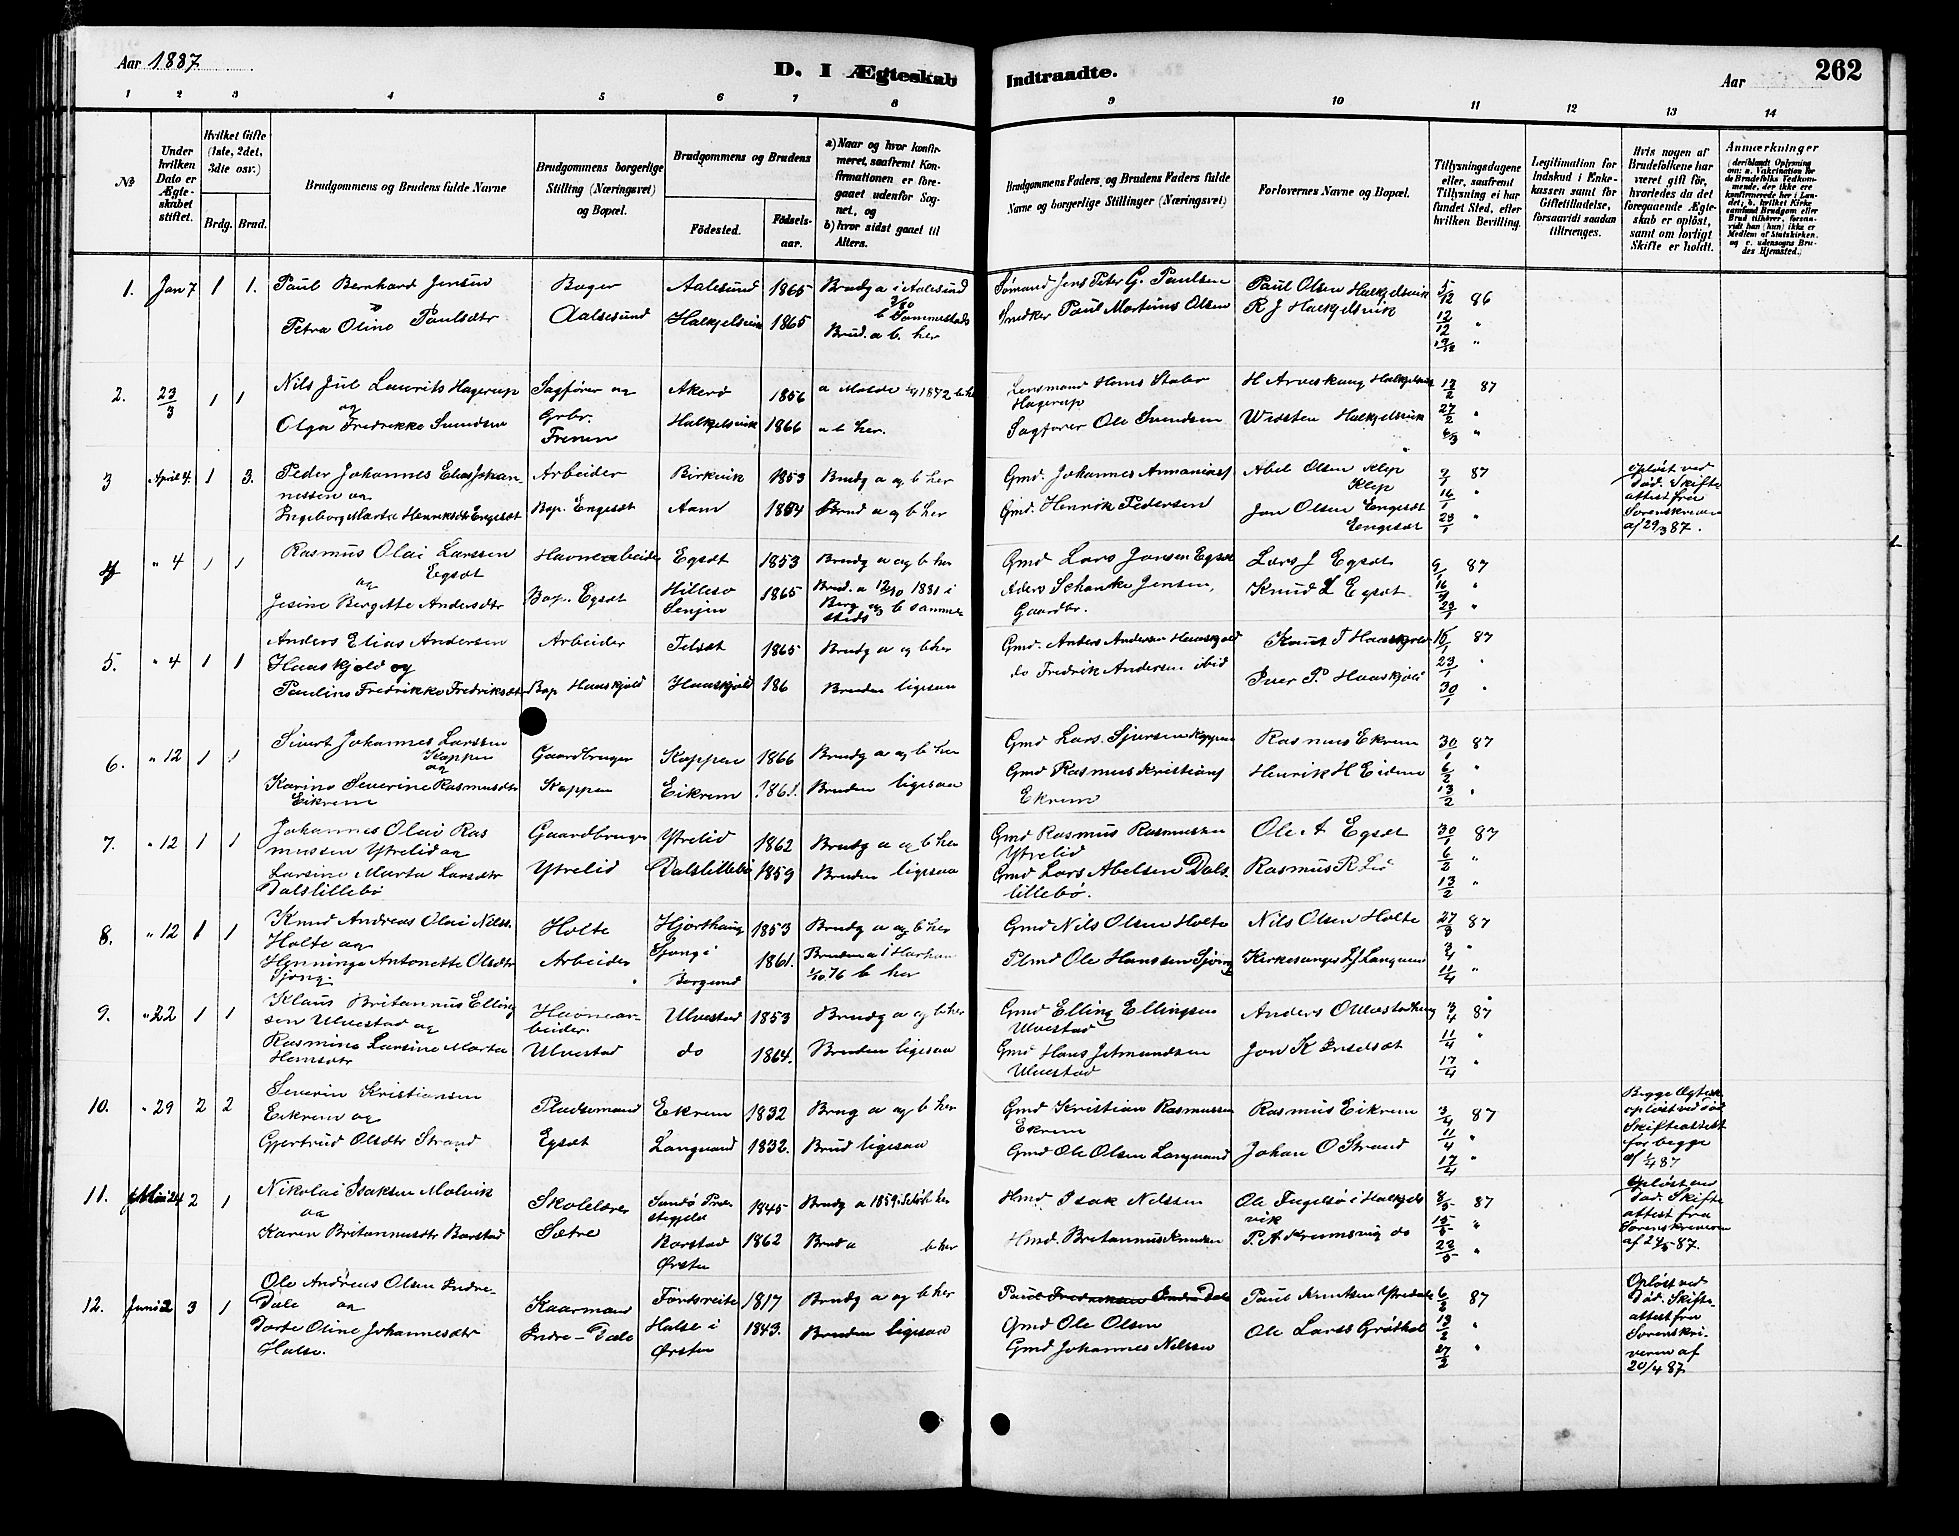 Aar 1887
D. I Ægteskab Indtraadte.
Aar
262
1 2 3 4 5 6 7 8 9 10 11 12 13 14
No
Under hvilken Dato er Ægteskabet stiftet.
Hvilket Gifte (1ste, 2det, 3die osv.)
Brdg. Brud.
Brudgommens og Brudens fulde Navne
Brudgommens borgerlige Stilling (Næringsvei) og Bopæl.
Brudgommens og Brudens
Fødested.
Fødselsaar.
a) Naar og hvor konfirmeret, saafremt Konfirmationen er foregaaet udenfor Sognet, og
b) hvor sidst gaaet til Alters.
Brudgommens Faders, og Brudens Faders fulde Navne og borgerlige Stillinger (Næringsvei)
Forlovernes Navne og Bopæl.
Tillysningsdagene eller, saafremt Tillysning ei har fundet Sted, efter hvilken Bevilling.
Legitimation for Indskud i Enkekassen samt for Giftetilladelse, forsaavidt saadan tiltrænges.
Hvis nogen af Brudefolkene har været gift før, hvorledes da det foregaaende Ægteskab er opløst, samt om lovligt Skifte er holdt.
Anmærkninger
1. Jan 7 1 1. Paul Bernhard Jensen Bager Aalesund 1865 Brudg a i Aalesund Sømand Jens Peter G. Paulsen Paul Olsen Halkjelsvik 5/12 86
Petra Oline Paulsdtr Aalesund Halkjelsvik 1865 b Sammesteds Snedker Paul Martinus Olsen R J Halkjelsvik 12/12 "
Brud. a b. her 19/12 "
2. 23/3 1 1 Nils Jul Laurits Hagerup Sagfører og Akerø 1856 a Molde 1872 b her Lensmand Hans Stabo H Arveskaug Halkjelsvik 13/2 87
og Gbr. Hagerup
Olga Fredrikke Svendsen Frenen Halkjelsvik 1866 a b her. Sagfører Ole Svendsen Widsten Halkjelsvik 27/2 "
6/3 "
3 April 4. 1 3. Peder Johannes Elias Johan- Arbeider Birkvik 1853 Brudg a og b her Gmd. Johannes Ananiass Abel Olsen Klep 9/1 87 opløst ved
nessen og Klep Død. Skifte
Ingeborg Marta Henriksdtr Engesæt Bop. Engesæt Aam 1854 Brud a og b her Gmd. Henrik Pedersen Jon Olsen Engesæt 16/1 " attest fra
Engesæt 23/1 " Sorenskriveren
af 29/3 87.
4 " 4 1 1 Rasmus Olai Larssen Havnearbeider Egsæt 1853 Brudg a og b her Gmd Lars Jonsen Egsæt Lars J Egsæt 9/1 87
og Egsæt Hillesø Brud. a 12/10 1881 i Anders Schanke Jensen, 16/1 "
Jesine Bergitte Andersdtr Bop. Egsæt Senjen 1865 Berg og b sammesteds Gaardbr. Knud L Egsæt 23/1 "
5. " 4 1 1 Anders Elias Andersen Arbeider Telsæt 1865 Brudg a og b her Gmd. Anders Andersen Haaskjold Knut T Haaskjold 16/1 87
Haaskjold og do Fredrik Andersen ibid 23/1 "
Pauline Fredrikke Fredriksdtr Bop Haaskjold Haaskjold 186 Bruden ligesaa Iver P. Haaskjold 30/1 "
6. " 12 1 1 Sivert Johannes Larssen Gaardbruger Koppen 1866 Brudg a og b her Gmd Lars. Sjursen Koppen Rasmus Ekrem 30/1 87
Koppen
og
Karine Severine Rasmusdtr Koppen Eikrem 1861. Bruden ligesaa Gmd Rasmus Kristians Henrik H Eidem 6/2 "
Eikrem Ekrem 13/2 "
7. " 12 1 1 Johannes Olai Ras Gaardbruger Ytrelid 1862 Brudg a og b her Gmd Rasmus Rasmussen Ole A Egsæt 30/1 87
mussen Ytrelid og Ytrelid 6/2 "
Larsine Marta Larsdtr Ytrelid Dalslillebø 1859 Bruden ligesaa Gmd Lars Abelsen Dals Rasmus R Lid 13/2 "
Dalslillebø lillebø.
8. " 12 1 1 Knud Andreas Olai Nilss. Holte Hjorthaug 1853 Brudg a og b her Gmd Nils Olsen Holte Nils Olsen Holte 27/3 87
Holte og 3/4 "
Henninge Antonette Olsdtr Arbeider Sjong i 1861. Bruden a i Harham Plmd Ole Hanssen Sjong Kirkesanger Langnæs 11/4 "
Sjong Borgund 1/10 76 b her
9. " 22 1 1 Klaus Britannus Elling Havnear- Ulvestad 1853 Brudg a og b her Gmd Elling Ellingsen Anders O Ulvestadhaug 3/4 87
sen Ulvestad og beider. Ulvestad 11/4 "
Rasmine Larsine Marta Ulvestad do 1864. Bruden ligesaa Gmd Hans Jetmundsen Jon K Indsæt 17/4 "
Hansdtr Ulvestad
10. " 29 2 2 Severin Kristiansen Pladsemand Ekrem 1832 Brug a og b her Gmd Kristian Rasmussen Rasmus Eikrem 3/4 87 Begge Ægtesk
Eikrem og Ekrem 11/4 " opløst ved død
Gjertrud Olsdtr Strand Egsæt Langvand 1832. Brud ligesaa Gmd Ole Olsen Langvand Johan O Strand 17/4 " Skifteattest
for begge
af 1/4 87
11. Mai 24 2 1 Nikolai Isaksen Molvik Skolelærer Sandø Præ- 1845 Brudg a 1859 b her Hmd Isak Nilssen Ole Fugelsø i Halkjels 8/5 87 Opløst ved
og stegjeld vik 15/5 " Død. Skifte
Karen Britannusdtr Barstad Sætre Barstad 1862 Brud a b her Hmd. Britannus Knudsen P. A. Krumsvig do 23/5 " attest fra
Ørsten Sorenskriveren
af 24/5 87.
12. Juni 2 3 1 Ole Andreas Olsen Indre- Kaarmand Førdsreite 1817 Brudg a og b her Paul Fredriksen Indre Dale Paul Knutsen Ytredale 6/2 87 Opløst ved
Dale og Gmd Ole Olsen 13/2 " Død. Skifte-
Dorte Oline Johannesdtr Indre-Dale Halse i 1843. Bruden ligesaa Gmd Johannes Nilssen Ole Larss Grøthol 27/2 " attest fra
Halse. Ørsten Sorenskri-
veren af
20/4 87